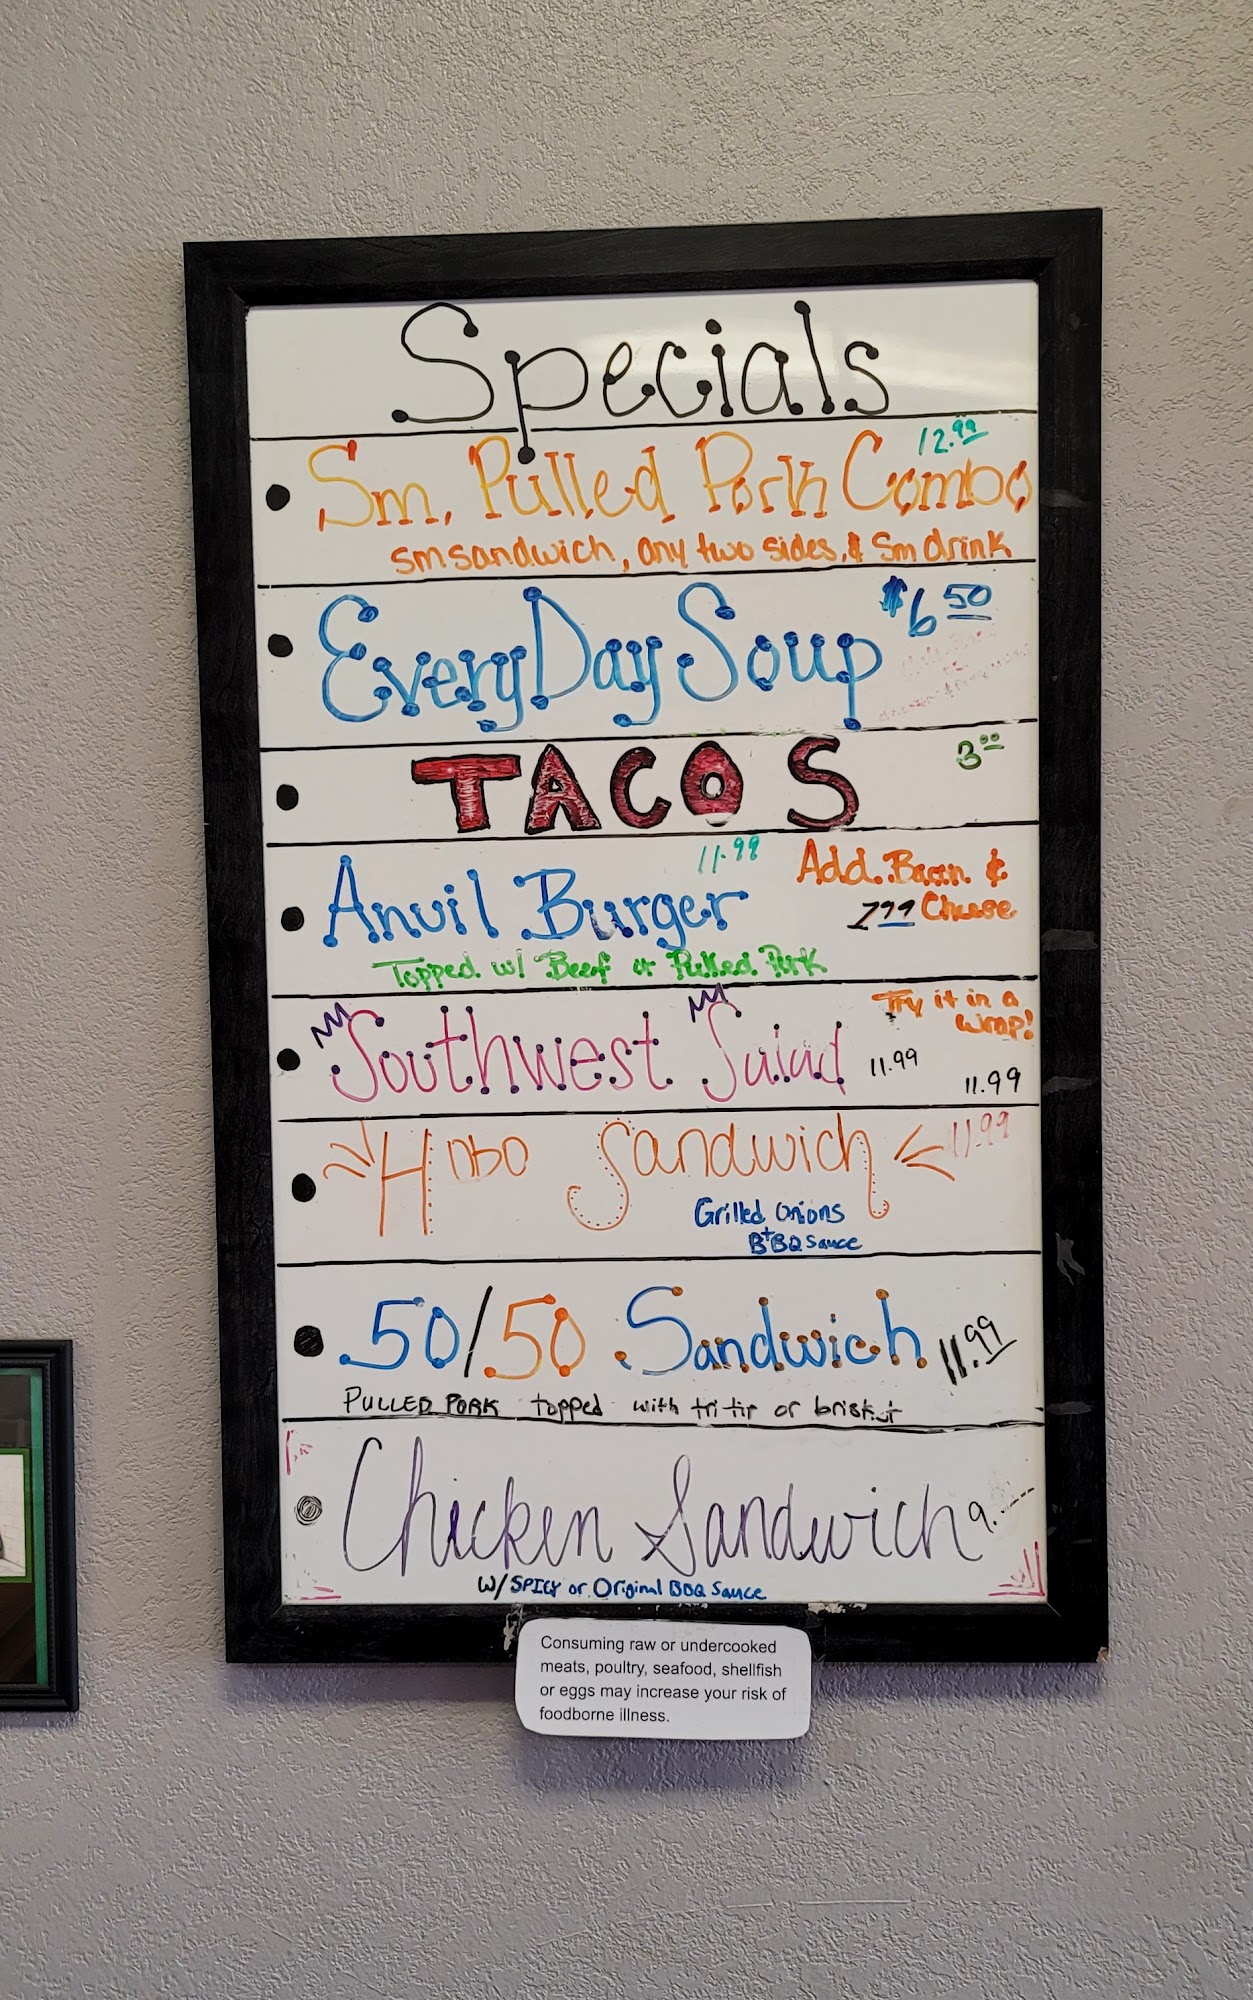 Specials
12.99
Sm. Pulled Pork Combo
sm sandwich, any two sides, & Sm drink
EveryDay Soup $6.50
TACOS 3.00
11.99
Anvil Burger
Add. Bacon &
Cheese
Topped w/ Beef or Pulled Pork
Southwest Salad 11.99
Try it in a
wrap!
11.99
Hobo Sandwich 11.99
Grilled Onions
+
BBQ Sauce
50/50 Sandwich 11.99
PULLED PORK topped with tri tip or brisket
Chicken Sandwich 9.
W/ SPICY or Original BBQ Sauce
Consuming raw or undercooked
meats, poultry, seafood, shellfish
or eggs may increase your risk of
foodborne illness.